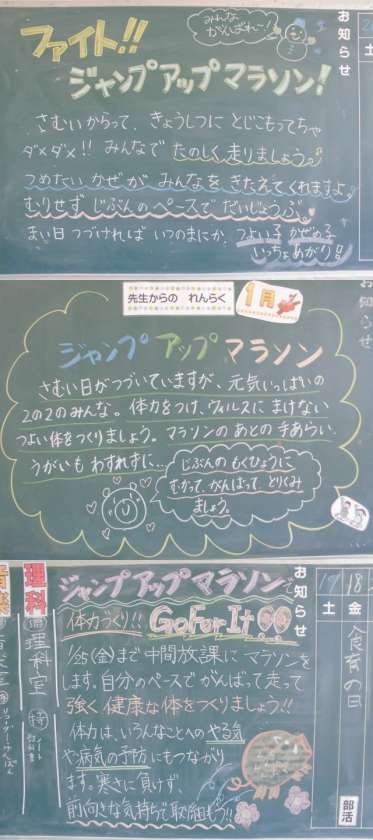 みんな
がんばれ〜!
お知らせ
土
ファイト!!
ジャンプアップマラソン!
さむいからって、きょうしつに とじこもってちゃ
ダメダメ!! みんなで たのしく走りましょう♪
つめたい かぜが みんなを きたえてくれますよ。
むりせず じぶんのペースで だいじょうぶ。
まい日 つづければ いつのまにか、つよい子 かぜの子
いっちょあがり!!
先生からの れんらく
1月
お知らせ
ジャンプ アップ マラソン
さむい日がつづいていますが、元気いっぱいの
2の2のみんな。体力をつけ、ウィルスに まけない
つよい体をつくりましょう。マラソンの あとの 手あらい、
うがいも わすれずに…
じぶんの もくひょうに
むかって がんばって とりくみ
ましょう。
お知らせ
ジャンプアップマラソンで
体力づくり!! Go For It!!
1/25(金)まで 中間放課に マラソンを
します。自分のペースで がんばって走って
強く 健康な体をつくりましょう!!
体力は、いろんなことへの やる気
や病気の予防にもつながり
ます。寒さに負けず、
前向きな気持ちで取り組もう!!
18
金
土
食育の日
部活
理科
理科室
音楽
音楽室